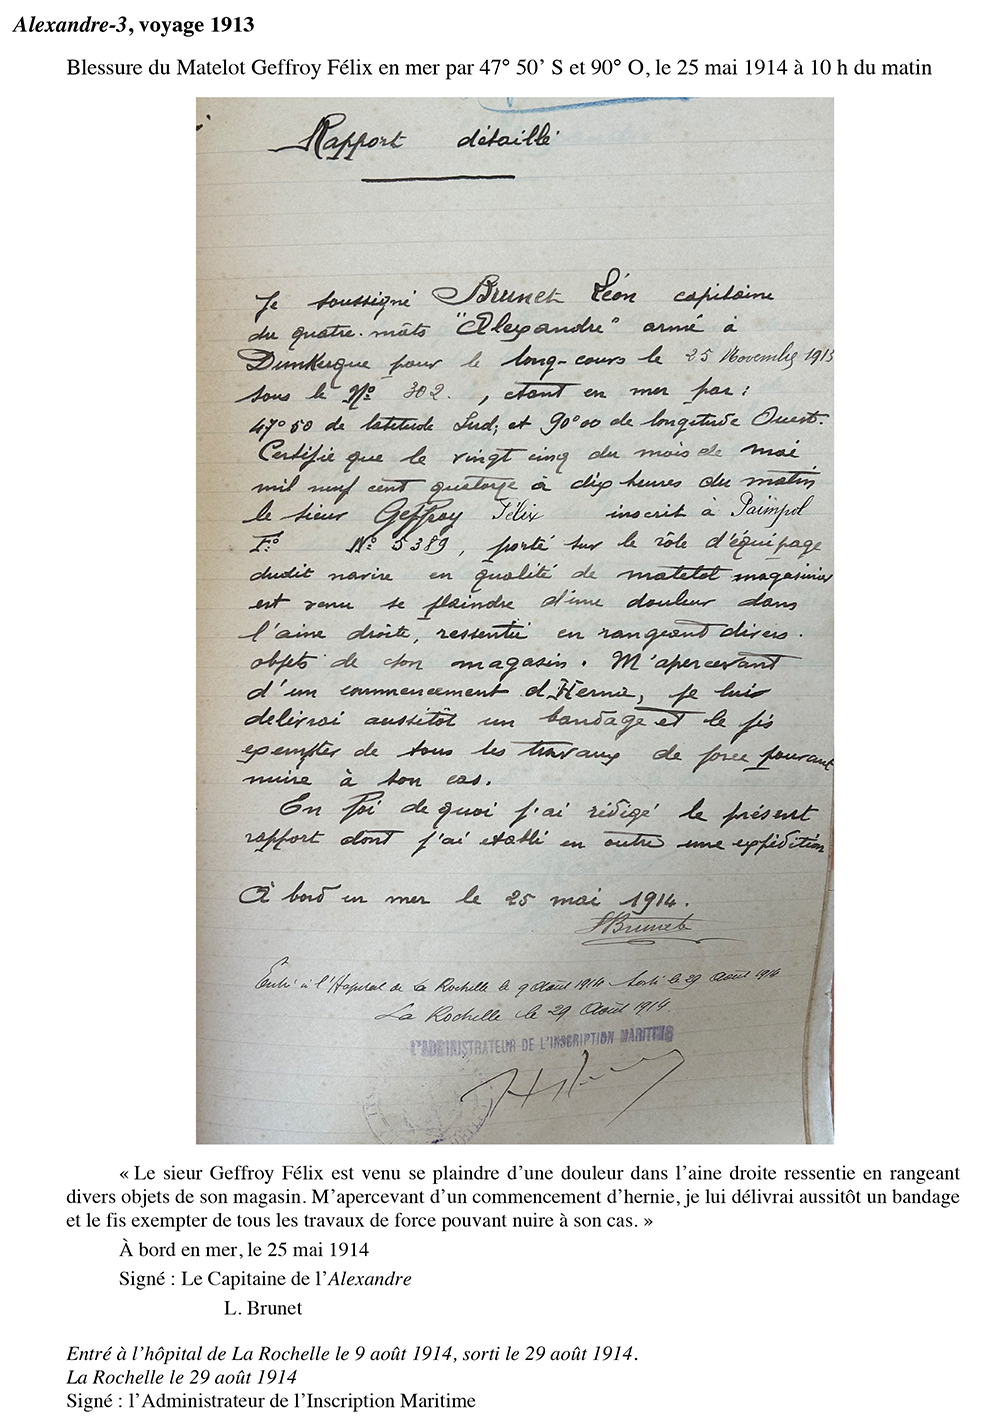 Alexandre-3, voyage 1913
Blessure du Matelot Geffroy Félix en mer par 47° 50’ S et 90° O, le 25 mai 1914 à 10 h du matin
Rapport détaillé
Je soussigné Brunet Léon capitaine
du quatre-mâts "Alexandre" armé à
Dunkerque pour le long-cours le 25 Novembre 1913
sous le No 302. , étant en mer par :
47°50 de latitude Sud; et 90°00 de longitude Ouest.
Certifie que le vingt cinq du mois de mai
mil neuf cent quatorze à dix heures du matin
le sieur Geffroy Félix inscrit à Paimpol
Fo No 5389, porté sur le rôle d'équipage
dudit navire en qualité de matelot magasinier
est venu se plaindre d'une douleur dans
l'aine droite, ressentie en rangeant divers
objets de son magasin. M'apercevant
d'un commencement d'Hernie, je lui
delivrai aussitôt un bandage et le fis
exempter de tous les travaux de force pouvant
nuire à son cas.
En foi de quoi j'ai rédigé le présent
rapport dont j'ai établi en outre une expédition
À bord en mer le 25 mai 1914.
LBrunet
Entré à l'Hopital de La Rochelle le 9 Août 1914 Sorti le 29 Août 1914
La Rochelle le 29 Août 1914.
L'ADMINISTRATEUR DE L'INSCRIPTION MARITIME
« Le sieur Geffroy Félix est venu se plaindre d’une douleur dans l’aine droite ressentie en rangeant
divers objets de son magasin. M’apercevant d’un commencement d’hernie, je lui délivrai aussitôt un bandage
et le fis exempter de tous les travaux de force pouvant nuire à son cas. »
À bord en mer, le 25 mai 1914
Signé : Le Capitaine de l’Alexandre
L. Brunet
Entré à l’hôpital de La Rochelle le 9 août 1914, sorti le 29 août 1914.
La Rochelle le 29 août 1914
Signé : l’Administrateur de l’Inscription Maritime